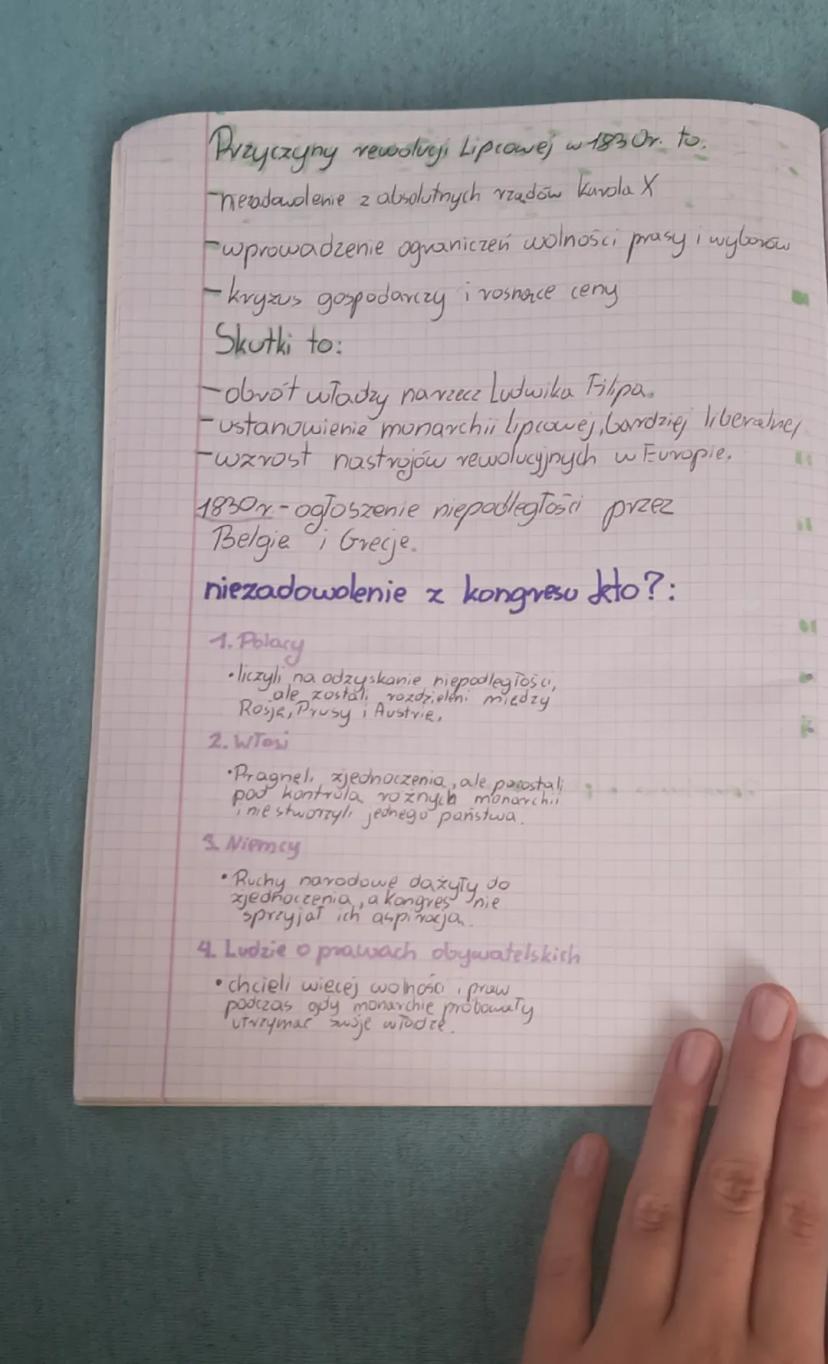 Przyczyny rewolucji Lipcowej w 1830r. to:
-niezadowolenie z absolutnych rządów Karola X
-wprowadzenie ograniczeń wolności prasy i wyborów
-kryzus gospodarczy i rosnące ceny
Skutki to:
-obrót władzy na rzecz Ludwika Filipa.
-ustanowienie monarchii lipcowej, bardziej liberalnej
-wzrost nastrojów rewolucyjnych w Europie.
1830r.-ogłoszenie niepodległości przez
Belgie i Grecje.
niezadowolenie z kongresu kto?:
1. Polacy
•liczyli na odzyskanie niepodległości,
ale zostali rozdzieleni między
Rosję, Prusy i Austrię.
2. Włosi
•Pragneli zjednoczenia, ale pozostali
pod kontrolą roznych monarchii
i nie stworzyli jednego państwa.
3. Niemcy
•Ruchy narodowe dążyły do
zjednoczenia, a kongres nie
sprzyjał ich aspiracją.
4. Ludzie o prawach obywatelskich
•chcieli więcej wolności i praw
podczas gdy monarchie próbowały
utrzymać swoje władzę.